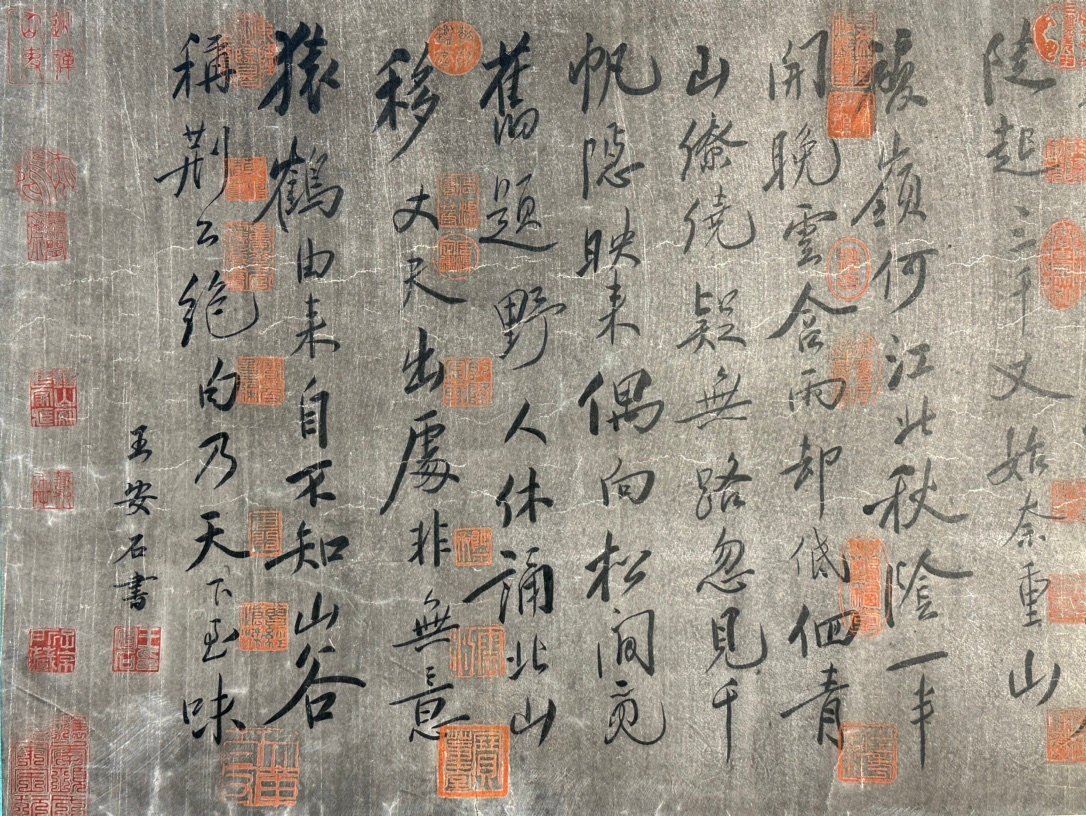 陡起三千丈始奈重山
複嶺何江北秋陰一半
開晚雲含雨却低佪青
山繚繞疑無路忽見千
帆隱映来偶向松間覓
舊題野人休誦北山
移丈夫出處非無意
猿鶴由来自不知山谷
稱荆公絶句乃天下至味
王安石書